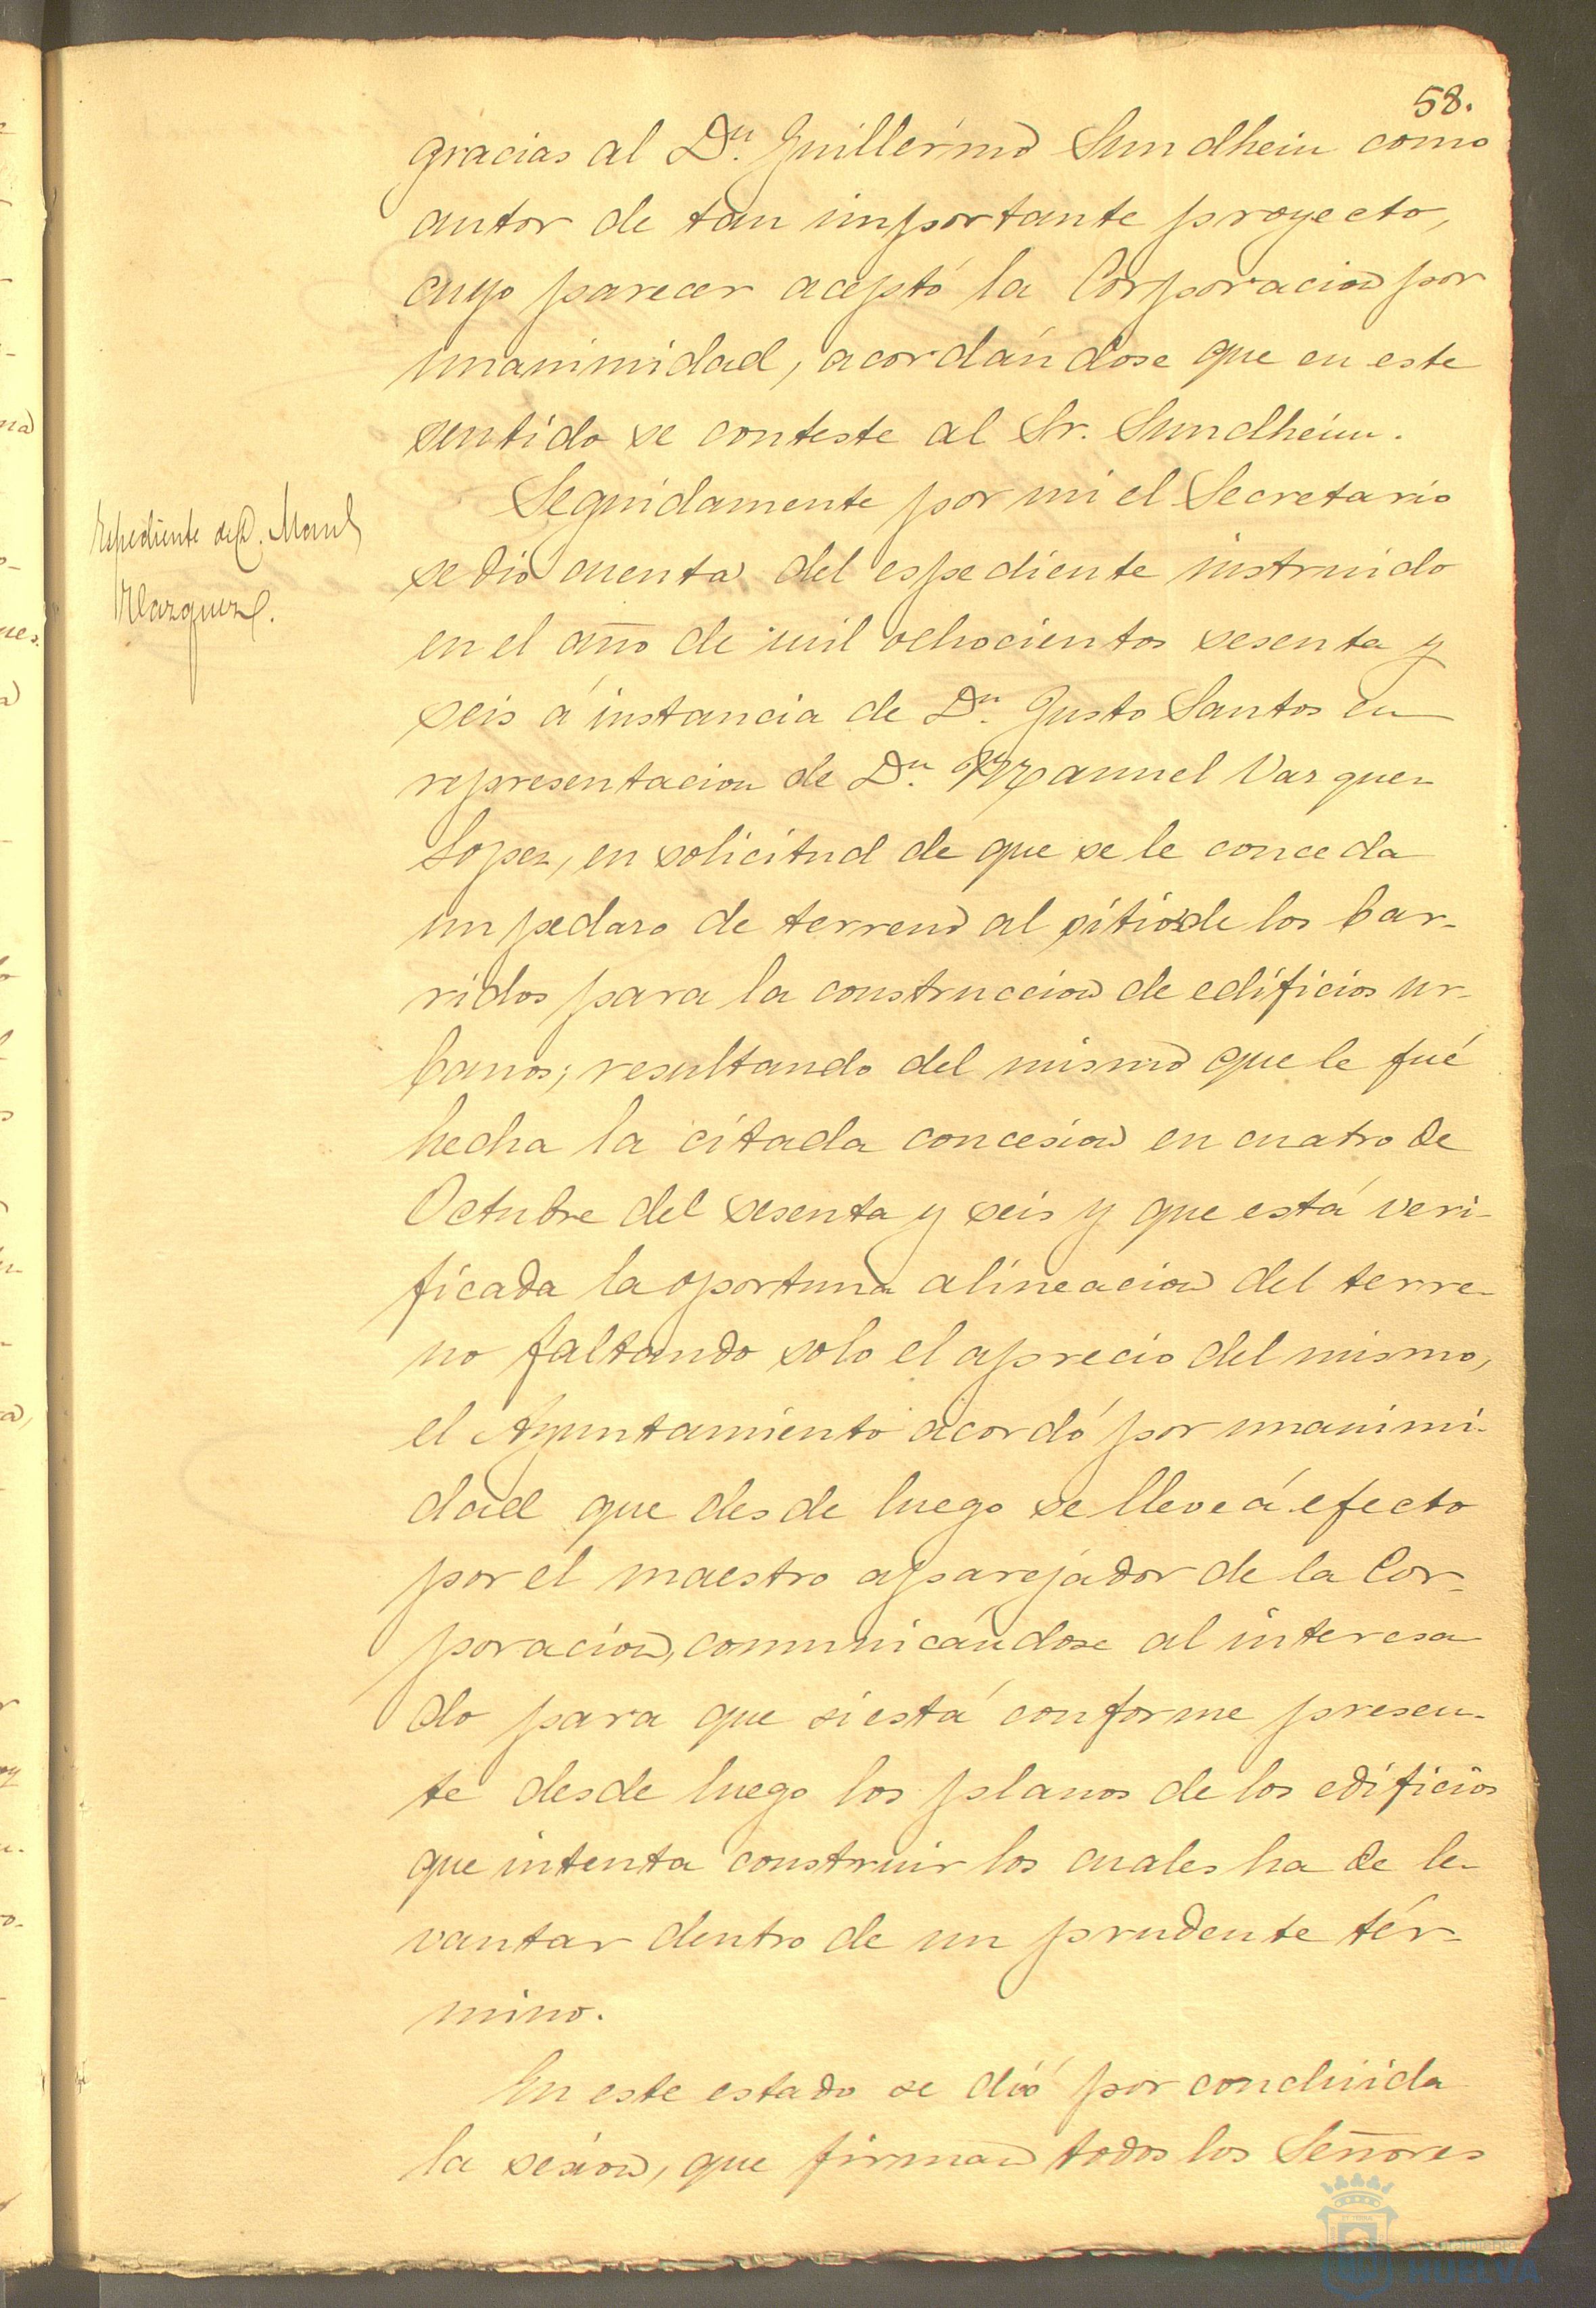 58.
gracias al Dn. Guillermo Sundheim como
autor de tan importante proyecto,
cuyo parecer aceptó la Corporacion por
unanimidad, acordándose que en este
sentido se conteste al Sr. Sundheim.
Espediente de D. Manl
Vazquez.
Seguidamente por mi el Secretario
se dió cuenta del espediente instruido
en el año de mil ochocientos sesenta y
seis á instancia de Dn. Justo Santos en
representacion de Dn. Manuel Vazquez
Lopez, en solicitud de que se le conceda
un pedazo de terreno al sitio de los bar-
ridos para la construccion de edificios ur-
banos; resultando del mismo que le fué
hecha la citada concesion en cuatro de
Octubre del sesenta y seis y que está veri-
ficada la oportuna alineacion del terre-
no faltando solo el aprecio del mismo,
el Ayuntamiento acordó por unanimi-
dad que desde luego se lleve á efecto
por el maestro aparejador de la Cor-
poracion, comunicándose al interesa
do para que si está conforme presen-
te desde luego los planos de los edificios
que intenta construir los cuales ha de le-
vantar dentro de un prudente tér-
mino.
En este estado se dió por concluida
la sesion, que firman todos los Señores
HUELVA